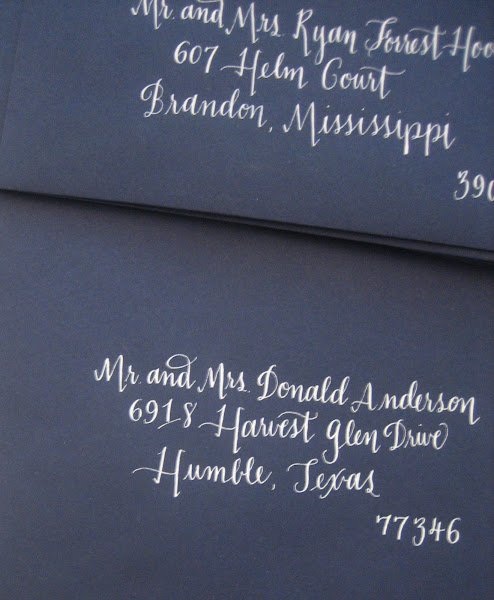 Mr. and Mrs. Ryan Forrest
607 Helm Court
Brandon, Mississippi
Mr. and Mrs. Donald Anderson
6918 Harvest Glen Drive
Humble, Texas
77346